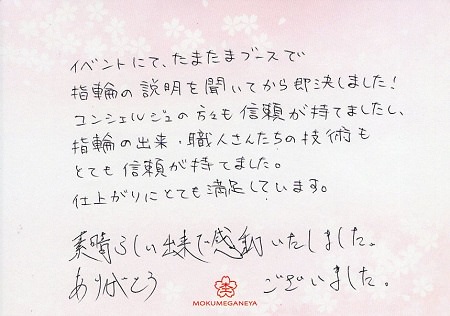 イベントにて、たまたまブースで
指輪の説明を聞いてから即決しました!
コンシェルジュの方々も信頼が持てましたし、
指輪の出来・職人さんたちの技術も
とても信頼が持てました。
仕上がりにとても満足しています。
素晴らしい出来で感動いたしました。
ありがとう ございました。
MOKUMEGANEYA